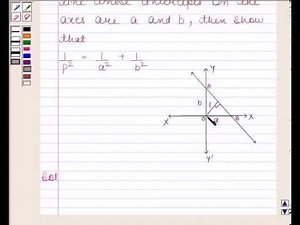 line whose intercepts on the
axes are a and b, then show
that
1/p² = 1/a² + 1/b²
Y
A
b
P
X' O a B X
Y'
Sol